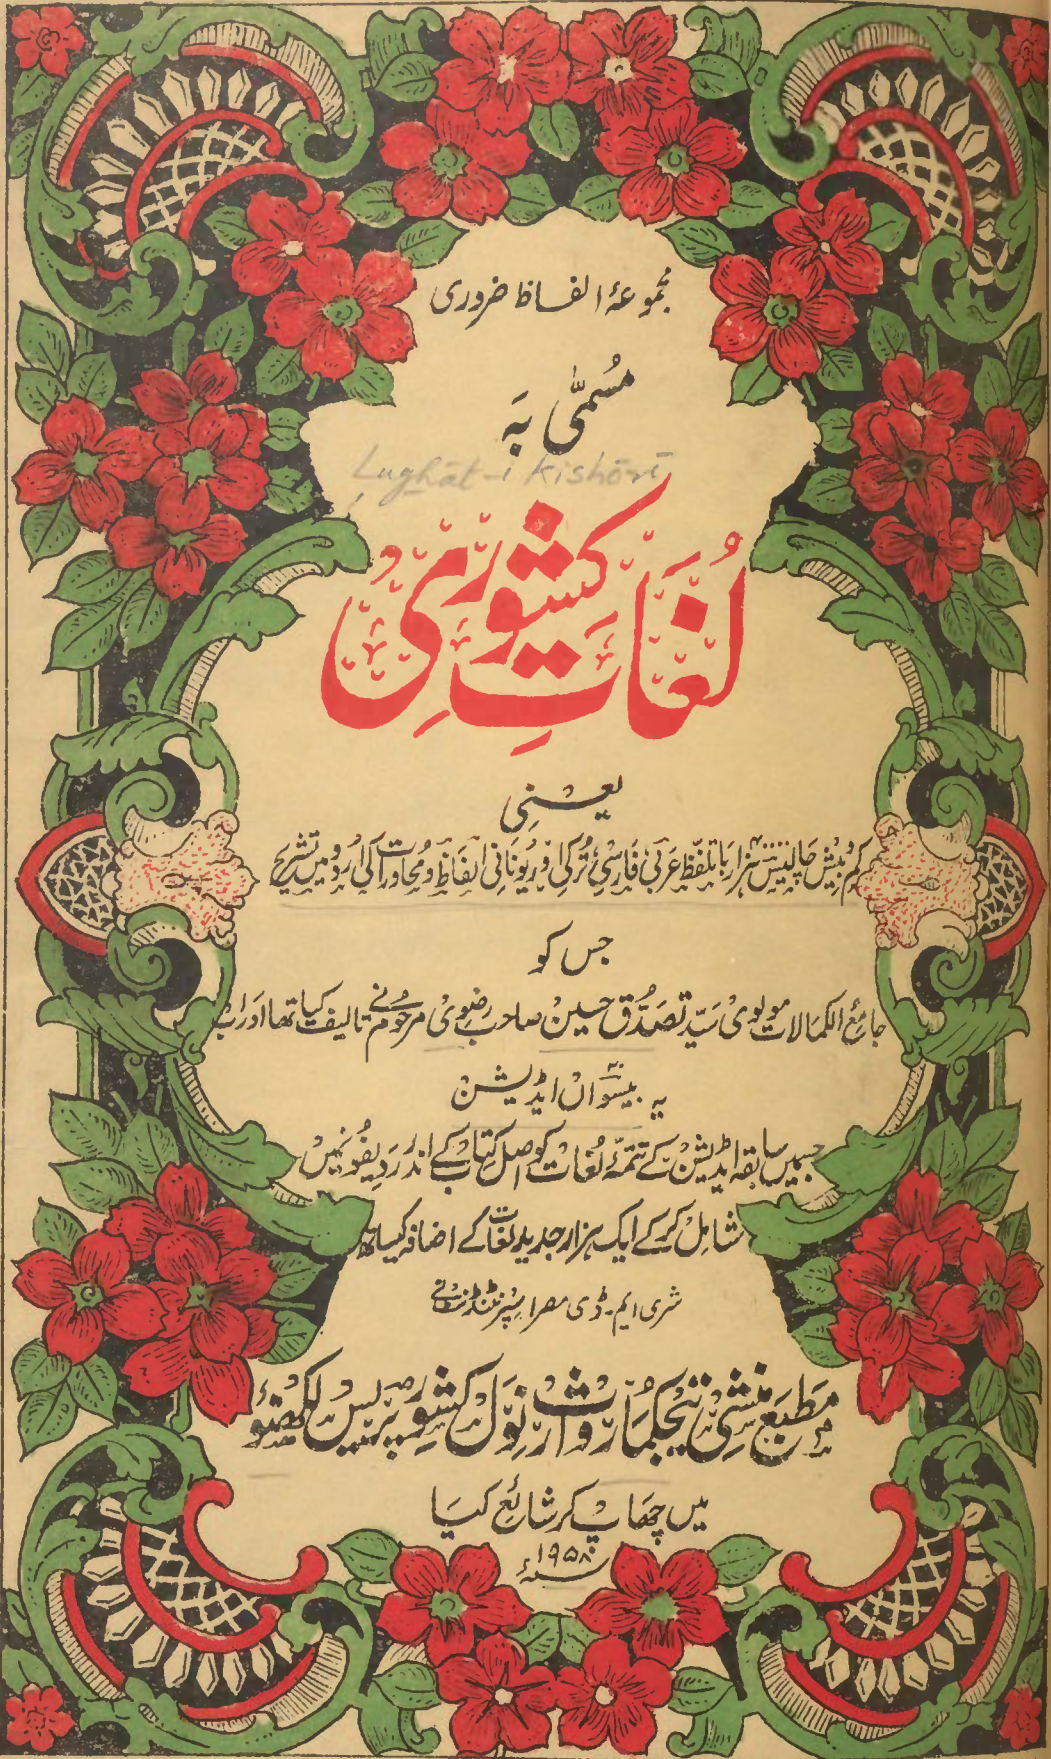 مجموعۂ الفاظ ضروری
مُسمّٰی بَہ
Lughāt-i Kishōrī
لُغاتِ کشوری
یعنِی
کم و بیش چالیس ہزار با تلفّظ عربی، فارسی، تُرکی اور یُونانی الفاظ و مُحاورات کی اُردو میں تشریح
جس کو
جامع الکمالات مولوی سیّد تصدُّق حسین صاحب رضوی مرحُوم نے تالیف کیا تھا اور اب
یہ بیسواں ایڈیشن
جسمیں سابقہ ایڈیشن کے تتمّۂ لُغات کو اصل کتاب کے اندر ردیفُونمیں
شامِل کرکے ایک ہزار جدید لغات کے اضافہ کیساتھ
شری ایم۔ڈی مصرا سپرنٹنڈنٹ نے
مطبع مُنشی تیجکُمار وارث نَوَل کشور پریس لکھنؤ
میں چھاپ کر شائع کیا
سنہ ۱۹۵۸ء